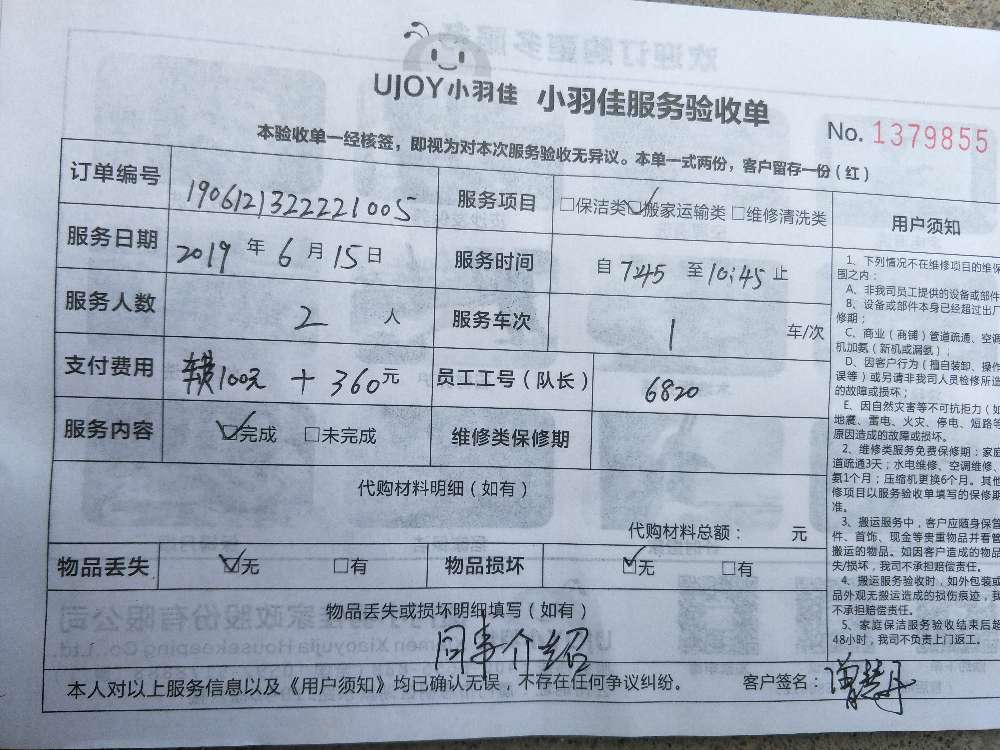 UJOY小羽佳 小羽佳服务验收单
No. 1379855
本验收单一经核签，即视为对本次服务验收无异议。本单一式两份，客户留存一份（红）
订单编号 1906121322221005 服务项目 □保洁类 ☑搬家运输类 □维修清洗类
服务日期 2019 年 6 月 15 日 服务时间 自 7:45 至 10:45 止
服务人数 2 人 服务车次 1 车/次
支付费用 100元 + 360元 员工工号（队长） 6820
服务内容 ☑完成 □未完成 维修类保修期
代购材料明细（如有）
代购材料总额： 元
物品丢失 ☑无 □有 物品损坏 ☑无 □有
物品丢失或损坏明细填写（如有）
同事介绍
本人对以上服务信息以及《用户须知》均已确认无误，不存在任何争议纠纷。 客户签名：
用户须知
1、下列情况不在维修项目的维保
围之内：
A、非我司员工提供的设备或部件
B、设备或部件本身已经超过出厂
修期；
C、商业（商铺）管道疏通、空调
机加氨（新机或漏氨）；
D、因客户行为（擅自装卸、操作
误等）或另请非我司人员检修所造
的故障或损坏；
E、因自然灾害等不可抗拒力（如
地震、雷电、火灾、停电、短路等
原因造成的故障或损坏。
2、维修类服务免费保修期：家庭
道疏通3天；水电维修、空调维修、
氨1个月；压缩机更换6个月。其他
修项目以服务验收单填写的保修期
准。
3、搬运服务中，客户应随身保管
件、首饰、现金等贵重物品并看管
搬运的物品。如因客户造成的物品
失/损坏，我司不承担赔偿责任。
4、搬运服务验收时，如外包装或
品外观无搬运造成的损伤痕迹，我
不承担赔偿责任。
5、家庭保洁服务验收结束后超
48小时，我司不负责上门返工。